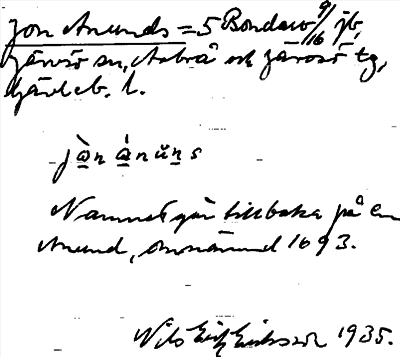 Jon Anunds = 5 Bondarv 9/16 jb,
Järvsö sn, Arbrå och Järvsö tg,
Gävleb. l.
jὰn ánŭn̠s
Namnet går tillbaka på en
Anund, omnämnd 1693.
Nils Erik Eriksson 1935.